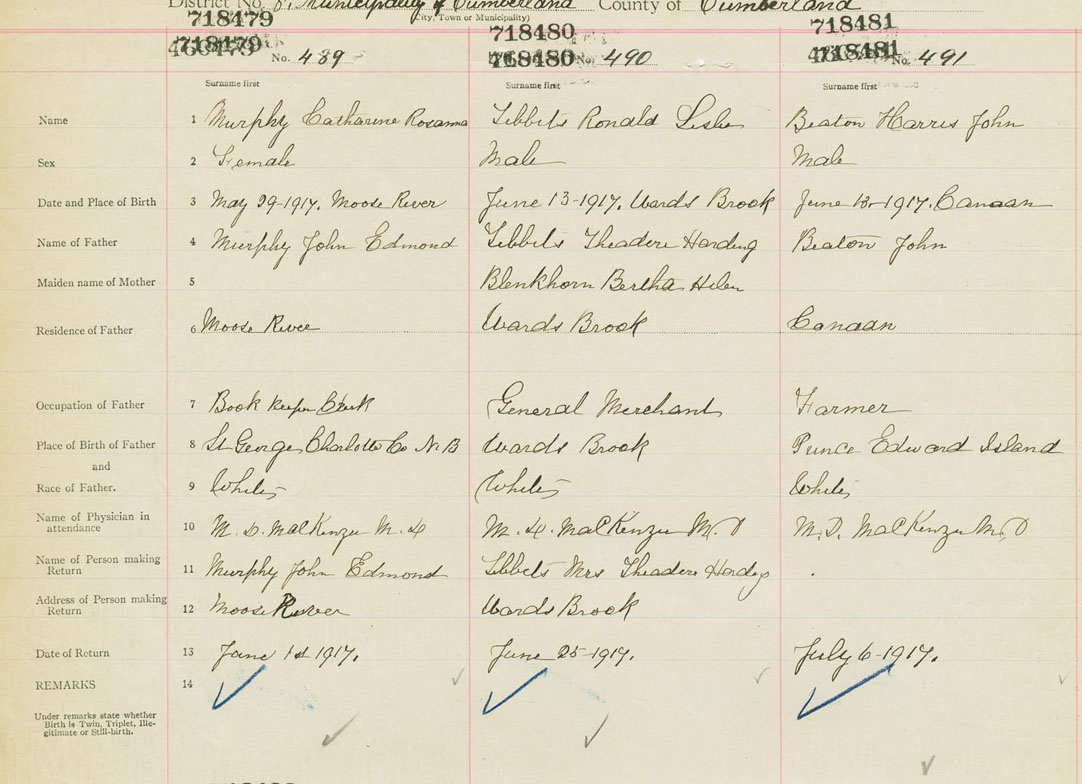 District No. 8, Municipality of Cumberland County of Cumberland
(City, Town or Municipality)
718479 718480 718481
718479 718480 718481
No. 489 No. 490 No. 491
Surname first Surname first Surname first
Name 1 Murphy Catharine Rosanna Tibbits Ronald Leslie Beaton Harris John
Sex 2 Female Male Male
Date and Place of Birth 3 May 29-1917. Moose River June 13-1917. Wards Brook June 13-1917. Canaan
Name of Father 4 Murphy John Edmond Tibbits Theadore Harding Beaton John
Maiden name of Mother 5 Blenkhorn Bertha Helen
Residence of Father 6 Moose River Wards Brook Canaan
Occupation of Father 7 Book keeper Clerk General Merchant Farmer
Place of Birth of Father 8 St George Charlotte Co N.B Wards Brook Prince Edward Island
and
Race of Father. 9 White White White
Name of Physician in
attendance 10 M. D. MacKenzie M. D M. D. MacKenzie M. D M. D. MacKenzie M. D
Name of Person making
Return 11 Murphy John Edmond Tibbets Mrs Theadore Harding
Address of Person making
Return 12 Moose River Wards Brook
Date of Return 13 June 1st 1917. June 25-1917. July 6-1917.
REMARKS 14
Under remarks state whether
Birth is Twin, Triplet, Ille-
gitimate or Still-birth.